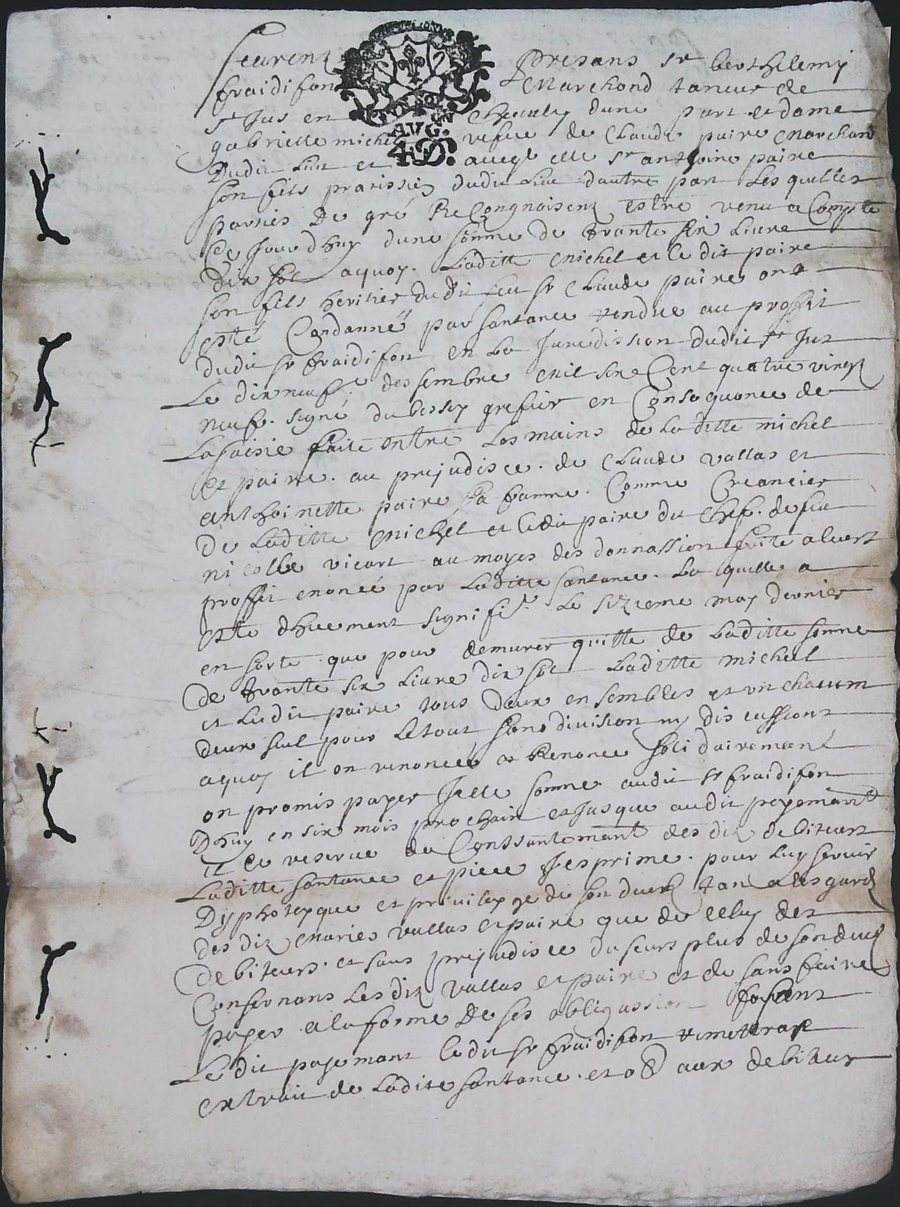 feurent presans sr berthelemy
fraidifon Marchond taneur de
st Jus en Chevalles dune part et dame
gabrielle michel vefve de Claude paire Marchand
AVG.
4D.
Dudit lieu et avecq elle sr anthoine paire
son fils praticien dudit lieu dautre part Lesquelles
parties De gré ReCongnoisent estre venu a Compte
De Jourdhuy dune somme de trante six livre
dix sol aquoy. Laditte Michel et le dit paire
son fils heritier dudit feu sr Claude paire ont
esté Condanné par santance rendue au proffit
dudit sr fraidifon en La Juredission dudit st Jux
Le dixneufe dessembre Mil six Cent quatre vingt
neuf. signé dubessey grefier en Consequance de
La saisie faite entre Les mains de La ditte michel
et paire. au prejudisce. de Claude vallas et
anthoinette paire sa famme. Comme Creancier
De Laditte Michel et Ledit paire du chef. de feu
nicolle vicart au moyen des donnassion faite a leurs
proffit enoncé par Laditte santance. La quelle a
esté dhuement signifié. Le sezieme may dernier
en sorte que pour demurer quitte de Laditte somme
De trante six Livre dix sol Laditte michel
et Ledit paire tous deux ensembles et un chacum
deux seul pour Le tout sans division ny discussions
aquoy il on renoncé et Renonce solidairemant
on promis payer Jcelle somme audit sr fraidifon
Dhuy en six mois prochain et Jusque audit peyemant
il ce reserve du Conssantemant des dit debiteurs
Laditte santance et piece y esprime. pour Luy servir
Dyphotepque et privileyge de son dueb tan a lesgard
des dit Maries vallas et paire que de celluy des
debiteurs. et sans prejudisce du seurs plus de son dueb
Consernans Les dit vallas et paire et de sans faire
payer a la forme De ses obligassion faisant
Le dit payemant Ledit sr fraidifon remettrat
extrait de Ladite santance. et aux debiteur